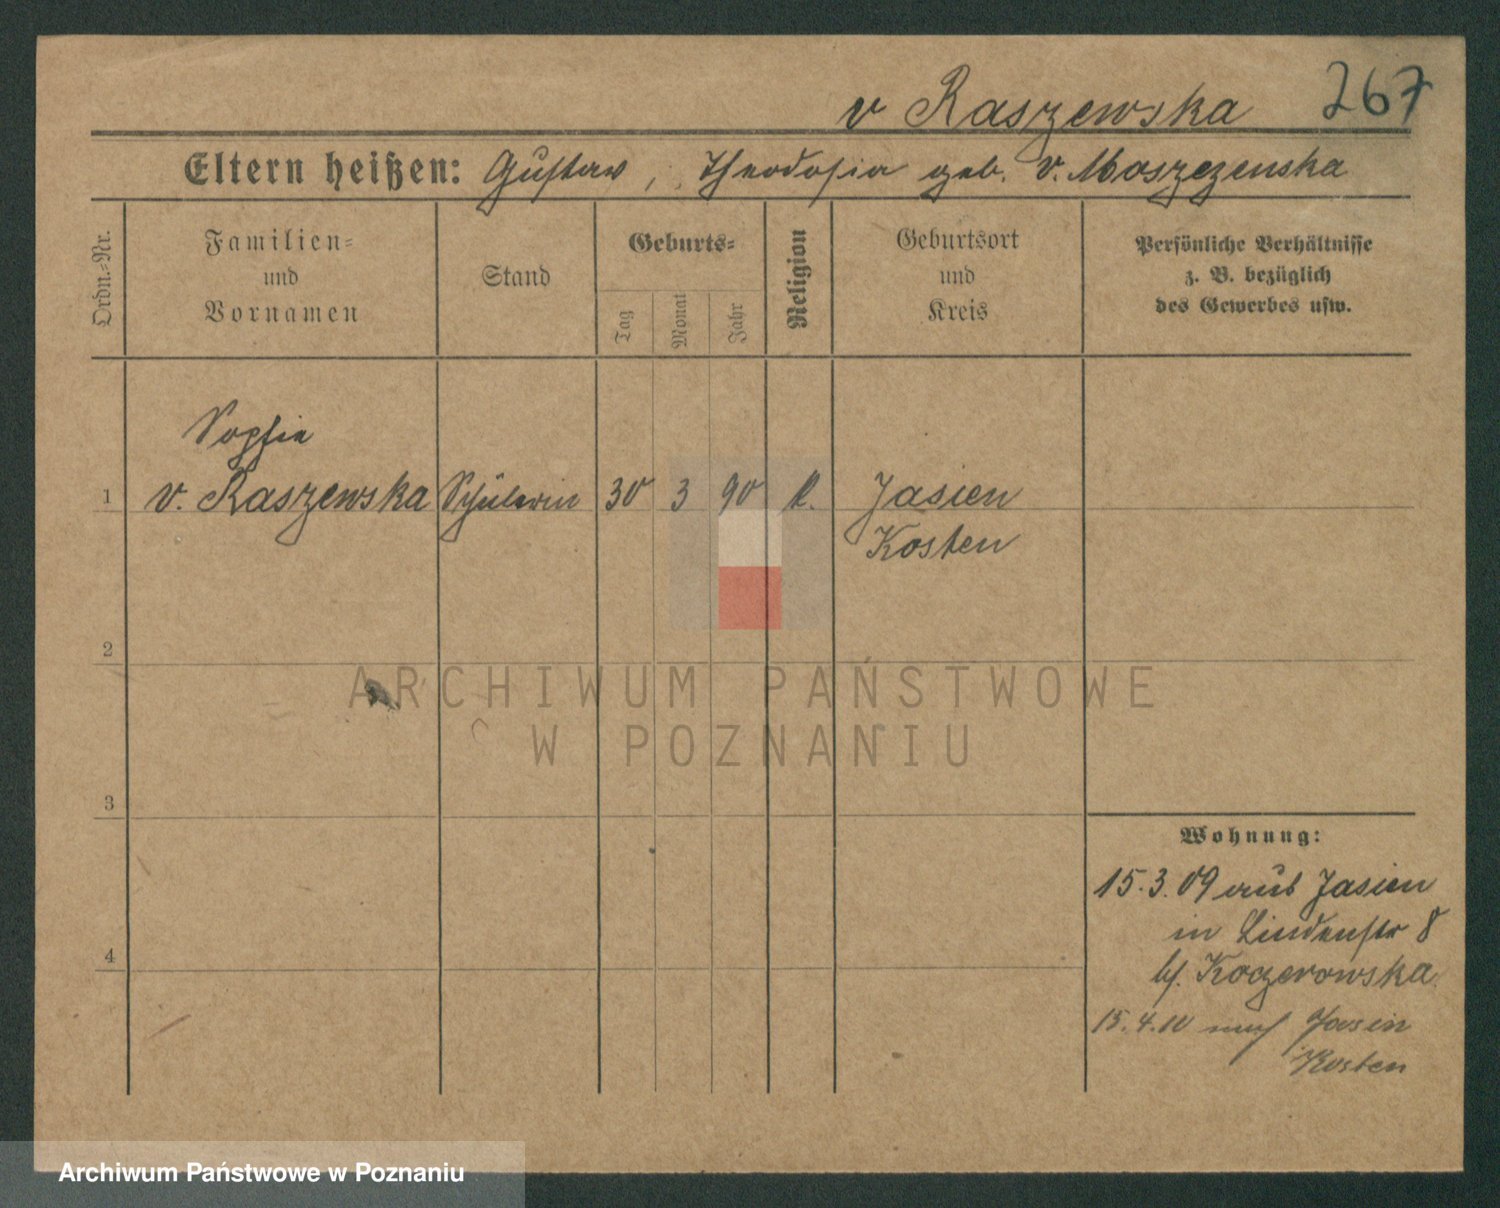 267
v Raszewska
Eltern heißen: Gustav, Theodosia geb. v. Moszczenska
Ordn.=Nr.
Familien=
und
Vornamen
Stand
Geburts=
Tag
Monat
Jahr
Religion
Geburtsort
und
Kreis
Persönliche Verhältnisse
z. B. bezüglich
des Gewerbes usw.
Sophie
1 v. Raszewska Schülerin 30 3 90 k. Jasien
Kosten
2
3
4
Wohnung:
15.3.09 aus Jasien
in Lindenstr 8
bf. Koczorowska
15.4.10 nach Jasin
Kosten
ARCHIWUM PAŃSTWOWE
W POZNANIU
Archiwum Państwowe w Poznaniu